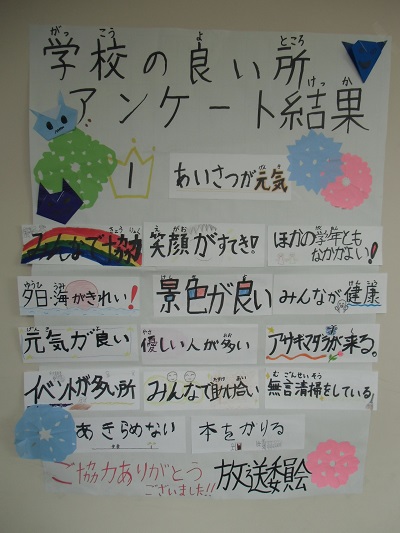 学校の良い所
アンケート結果
1
あいさつが元気
みんなで協力 笑顔がすてき! ほかの学年ともなかがよい!
夕日・海がきれい! 景色が良い みんなが健康
元気が良い 優しい人が多い アサギマダラが来る。
イベントが多い所 みんなで助け合い 無言清掃をしている
あきらめない 本をかりる
ご協力ありがとう
ございました!! 放送委員会